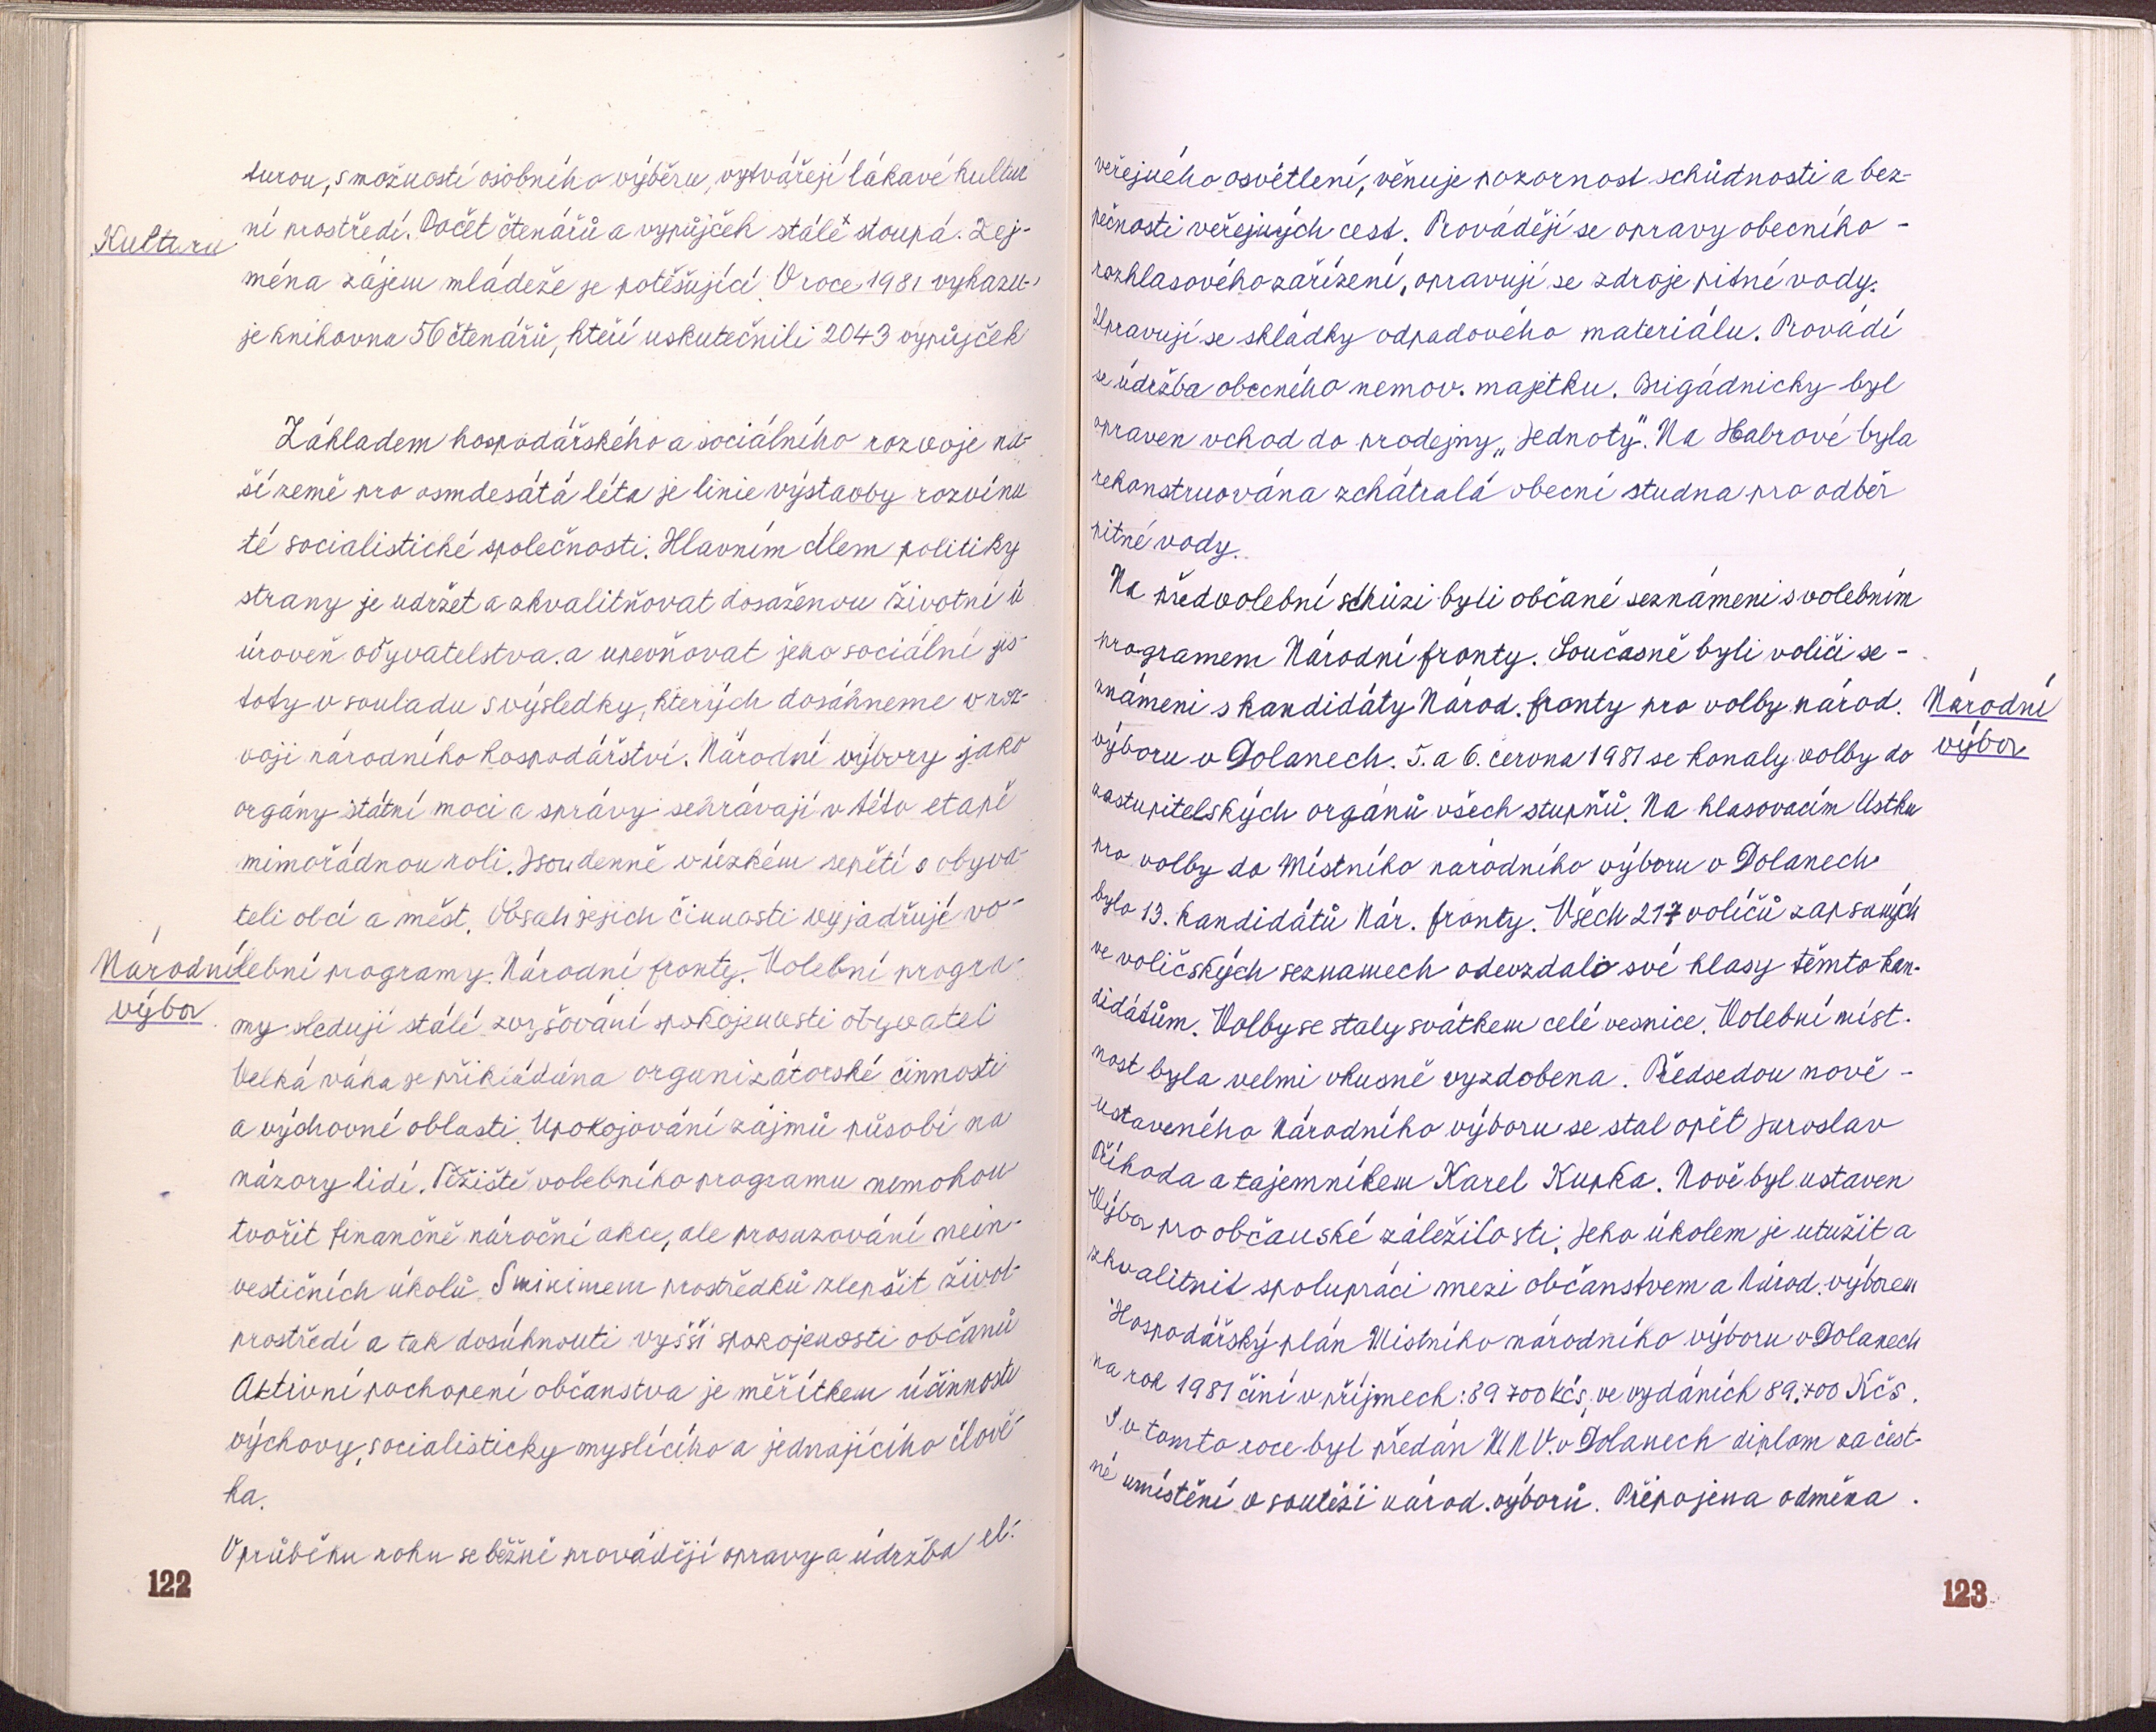 turou, s možností osobního výběru, vytvářejí lákavé kultur
Kultura
ní prostředí. Počet čtenářů a vypůjček stále stoupá. Zej-
ména zájem mládeže je potěšující. V roce 1981 vykazu-
je knihovna 56 čtenářů, kteří uskutečnili 2043 výpůjček
Základem hospodářského a sociálního rozvoje na-
ší země pro osmdesátá léta je linie výstavby rozvinu
té socialistické společnosti. Hlavním cílem politiky
strany je udržet a zkvalitňovat dosaženou životní ú
úroveň obyvatelstva. a upevňovat jeho sociální jis-
toty v souladu s výsledky, kterých dosáhneme v roz-
voji národního hospodářství. Národní výbory jako
orgány státní moci a správy sehrávají v této etapě
mimořádnou roli. Jsou denně v úzkém sepětí s obyva-
teli obcí a měst. Obsah jejich činnosti vyjadřují vo-
Národní
lební programy. Národní fronty. Volební progra-
výbor
my sledují stálé zvyšování spokojenosti obyvatel
Velká váha je přikládána organizátorské činnosti
a výchovné oblasti. Upokojování zájmů působí na
názory lidí. Těžiště volebního programu nemohou
tvořit finančně náročné akce, ale prosazování nein-
vestičních úkolů. S minimem prostředků zlepšit život-
prostředí a tak dosáhnouti vyšší spokojenosti občanů
Aktivní pochopení občanstva je měřítkem účinnosti
výchovy, socialisticky myslícího a jednajícího člově-
ka.
V průběhu roku se běžně provádějí opravy a údržba el.
122
veřejného osvětlení, věnuje pozornost schůdnosti a bez-
pečnosti veřejných cest. Provádějí se opravy obecního -
rozhlasového zařízení, opravují se zdroje pitné vody.
Upravují se skládky odpadového materiálu. Provádí
se údržba obecného nemov. majetku. Brigádnicky byl
opraven vchod do prodejny „Jednoty“. Na Habrové byla
rekonstruována zchátralá obecní studna pro odběr
pitné vody.
Na předvolební schůzi byli občané seznámeni s volebním
programem Národní fronty. Současně byli voliči se-
známeni s kandidáty Národ. fronty pro volby národ.
Národní
výboru v Dolanech. 5. a 6. června 1981 se konaly volby do
výbor
zastupitelských orgánů všech stupňů. Na hlasovacím lístku
pro volby do Místního národního výboru v Dolanech
bylo 13. kandidátů Nár. fronty. Všech 217 voličů zapsaných
ve voličských seznamech odevzdalo své hlasy těmto kan-
didátům. Volby se staly svátkem celé vesnice. Volební míst-
nost byla velmi vkusně vyzdobena. Předsedou nově -
ustaveného Národního výboru se stal opět Jaroslav
Příhoda a tajemníkem Karel Kupka. Nově byl ustaven
Výbor pro občanské záležitosti. Jeho úkolem je utužit a
zkvalitnit spolupráci mezi občanstvem a Národ. výborem
Hospodářský plán Místního národního výboru v Dolanech
na rok 1981 činí v příjmech: 89 700 Kčs, ve vydáních 89.700 Kčs.
I v tomto roce byl předán MNV. v Dolanech diplom za čest-
né umístění v soutěži národ. výborů. Připojena odměna.
123